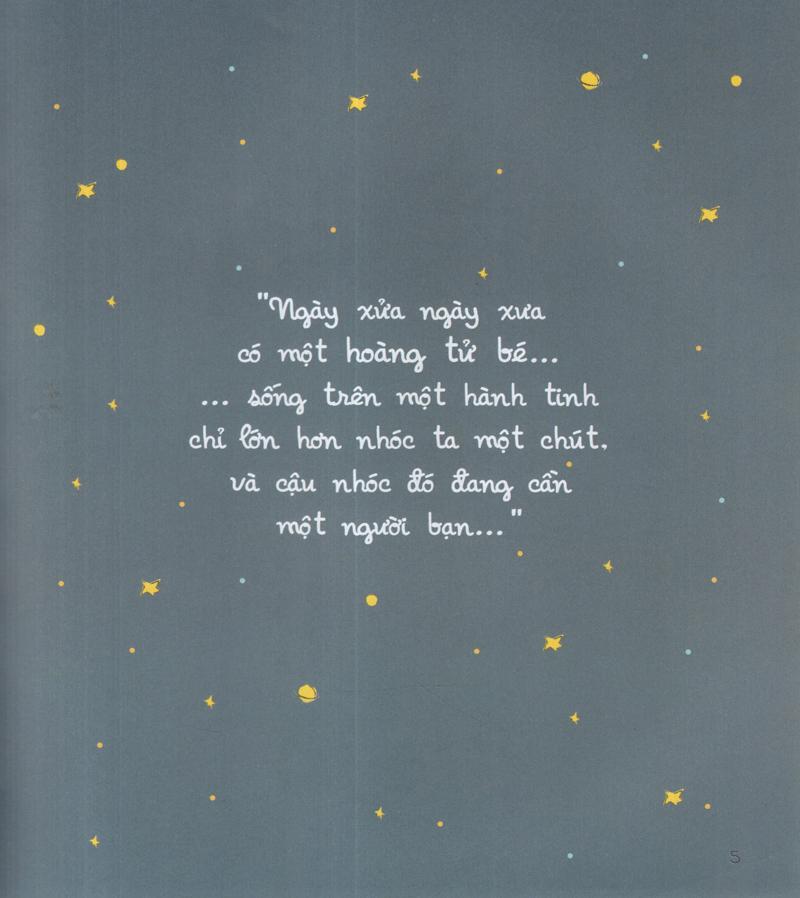 "Ngày xửa ngày xưa
có một hoàng tử bé...
... sống trên một hành tinh
chỉ lớn hơn nhóc ta một chút,
và cậu nhóc đó đang cần
một người bạn..."
5